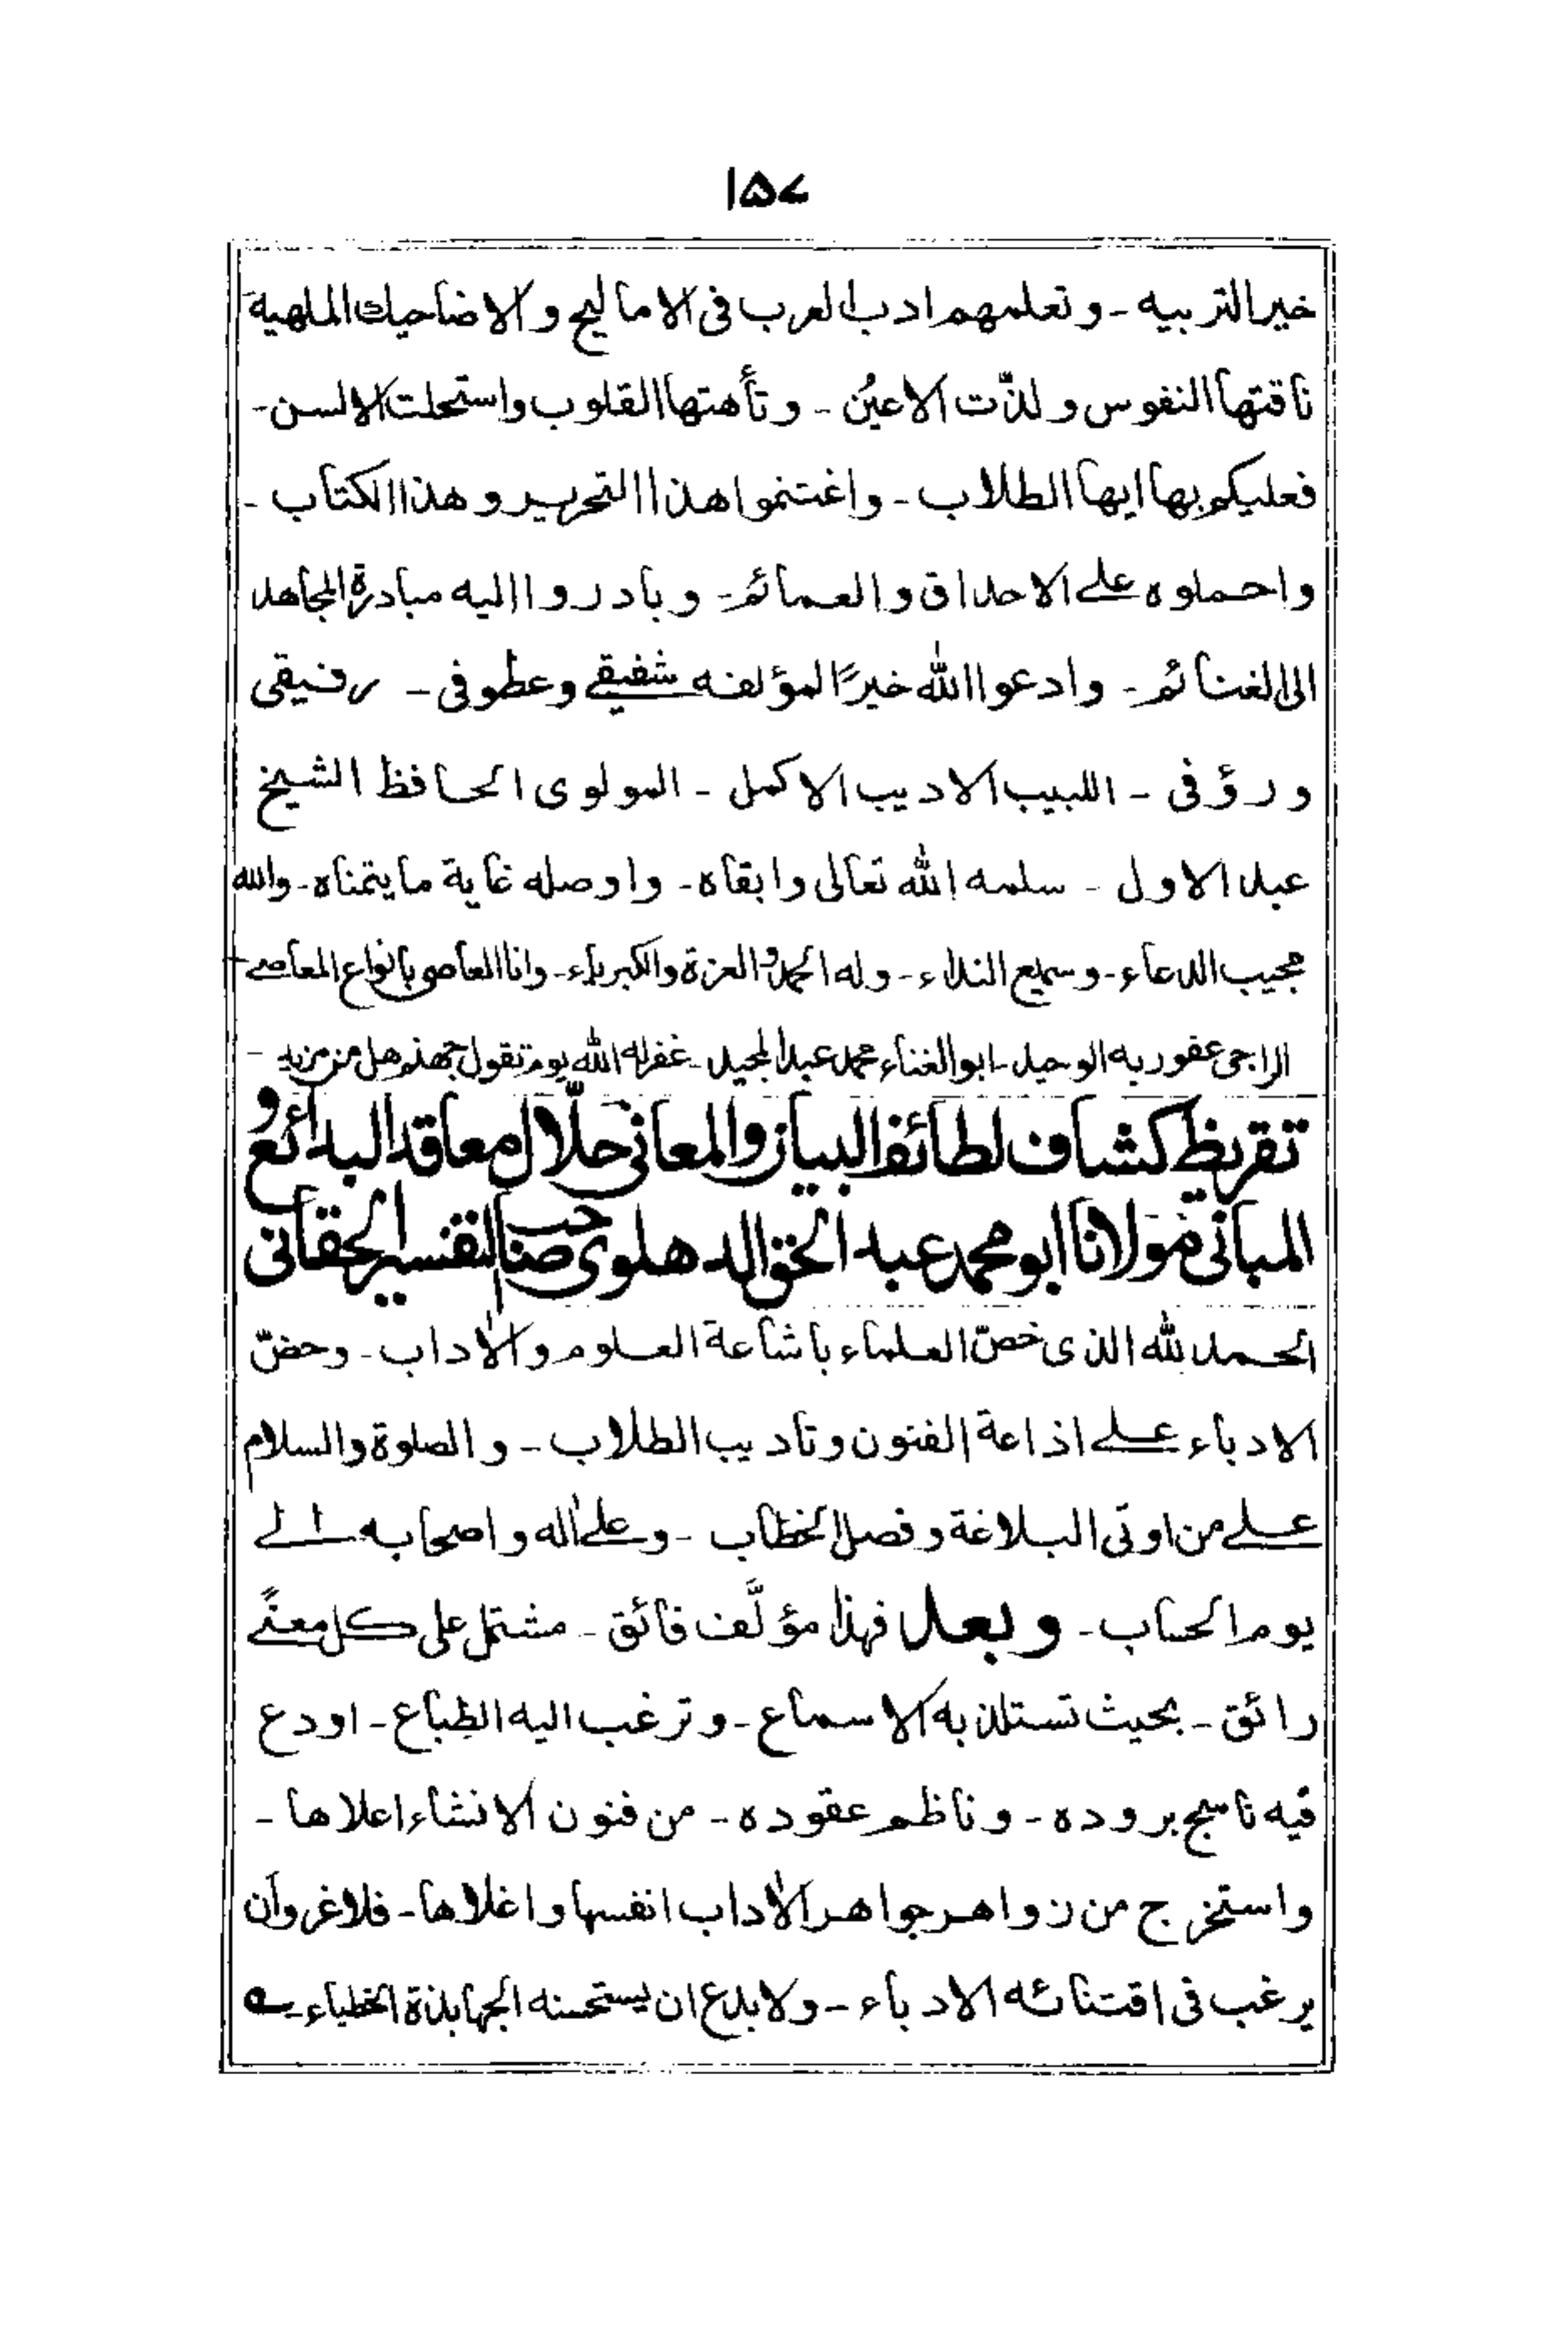 ۱۵۷
خير التربيه ـ وتعلمهم ادب العرب فى الاماليح والاضاحيك الملهية
ناقتها النفوس ولذّت الاعيُن ـ وتأهتها القلوب واستحلت الالسن ـ
فعليكم بها ايها الطلاب ـ واغتنموا هذا التحرير وهذا الكتاب ـ
واحملوه علے الاحداق والعمائم ـ وبادروا اليه مبادرة المجاهد
الى الغنائم ـ وادعوا الله خيرًا لمؤلفه شفيقے وعطوفى ـ رفيقى
ورؤفى ـ اللبيب الاديب الاكمل ـ المولوى الحافظ الشيخ
عبد الاول ـ سلمه الله تعالى وابقاه ـ واوصله غاية ما يتمناه ـ والله
مجيب الدعاء ـ وسميع النداء ـ وله الحمد والعزة والكبرياء ـ وانا العاصى بانواع المعاصے ـ
الراجى عفو ربه الوحيد ـ ابو الغناء محمد عبد المجيد ـ غفر له الله يوم تقول جهنم هل من مزيد ـ
تقريظ كشاف لطائف البيان والمعانى حلّال معاقد البدائع و
المبانى مولانا ابو محمد عبد الحق الدهلوى صاحب التفسير الحقانى
الحمد لله الذى خصّ العلماء باشاعة العلوم والاٰداب ـ وحضّ
الادباء علے اذاعة الفنون وتاديب الطلاب ـ والصلوة والسلام
علے من اوتى البلاغة وفصل الخطاب ـ وعلے اٰله واصحابه الے
يوم الحساب ـ وبعد فهذا مؤلَّف فائق ـ مشتمل على كل معنًے
رائق ـ بحيث تستلذ به الاسماع ـ وترغب اليه الطباع ـ اودع
فيه ناسج بروده ـ وناظم عقوده ـ من فنون الانشاء اعلاها ـ
واستخرج من زواهر جواهر الاٰداب انفسها واغلاها ـ فلا غرو ان
يرغب فى اقتنائه الادباء ـ ولا بدع ان يستحسنه الجهابذة الخطباء ـ